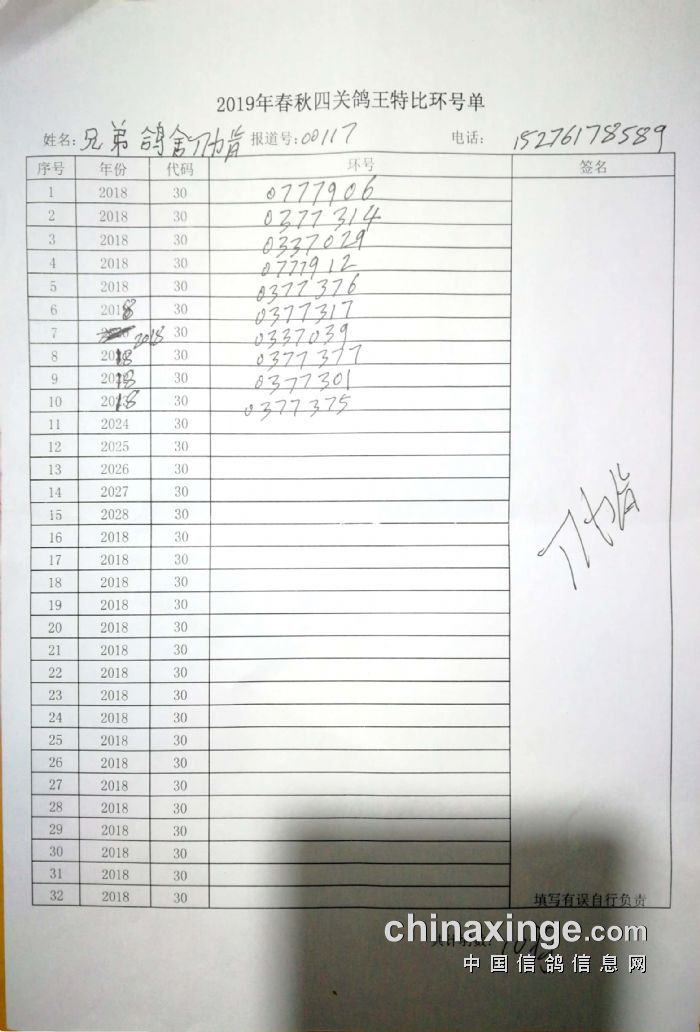 2019年春秋四关鸽王特比环号单
姓名: 兄弟鸽舍 报道号: 00117 电话: 15276178589
序号 年份 代码 环号 签名
1 2018 30 0777906
2 2018 30 0377314
3 2018 30 0337029
4 2018 30 0777912
5 2018 30 0377376
6 2018 30 0377317
7 2018 30 0337039
8 2018 30 0377377
9 2018 30 0377301
10 2018 30 0377375
11 2024 30
12 2025 30
13 2026 30
14 2027 30
15 2028 30
16 2018 30
17 2018 30
18 2018 30
19 2018 30
20 2018 30
21 2018 30
22 2018 30
23 2018 30
24 2018 30
25 2018 30
26 2018 30
27 2018 30
28 2018 30
29 2018 30
30 2018 30
31 2018 30
32 2018 30
填写有误自行负责
chinaxinge.com
中国信鸽信息网